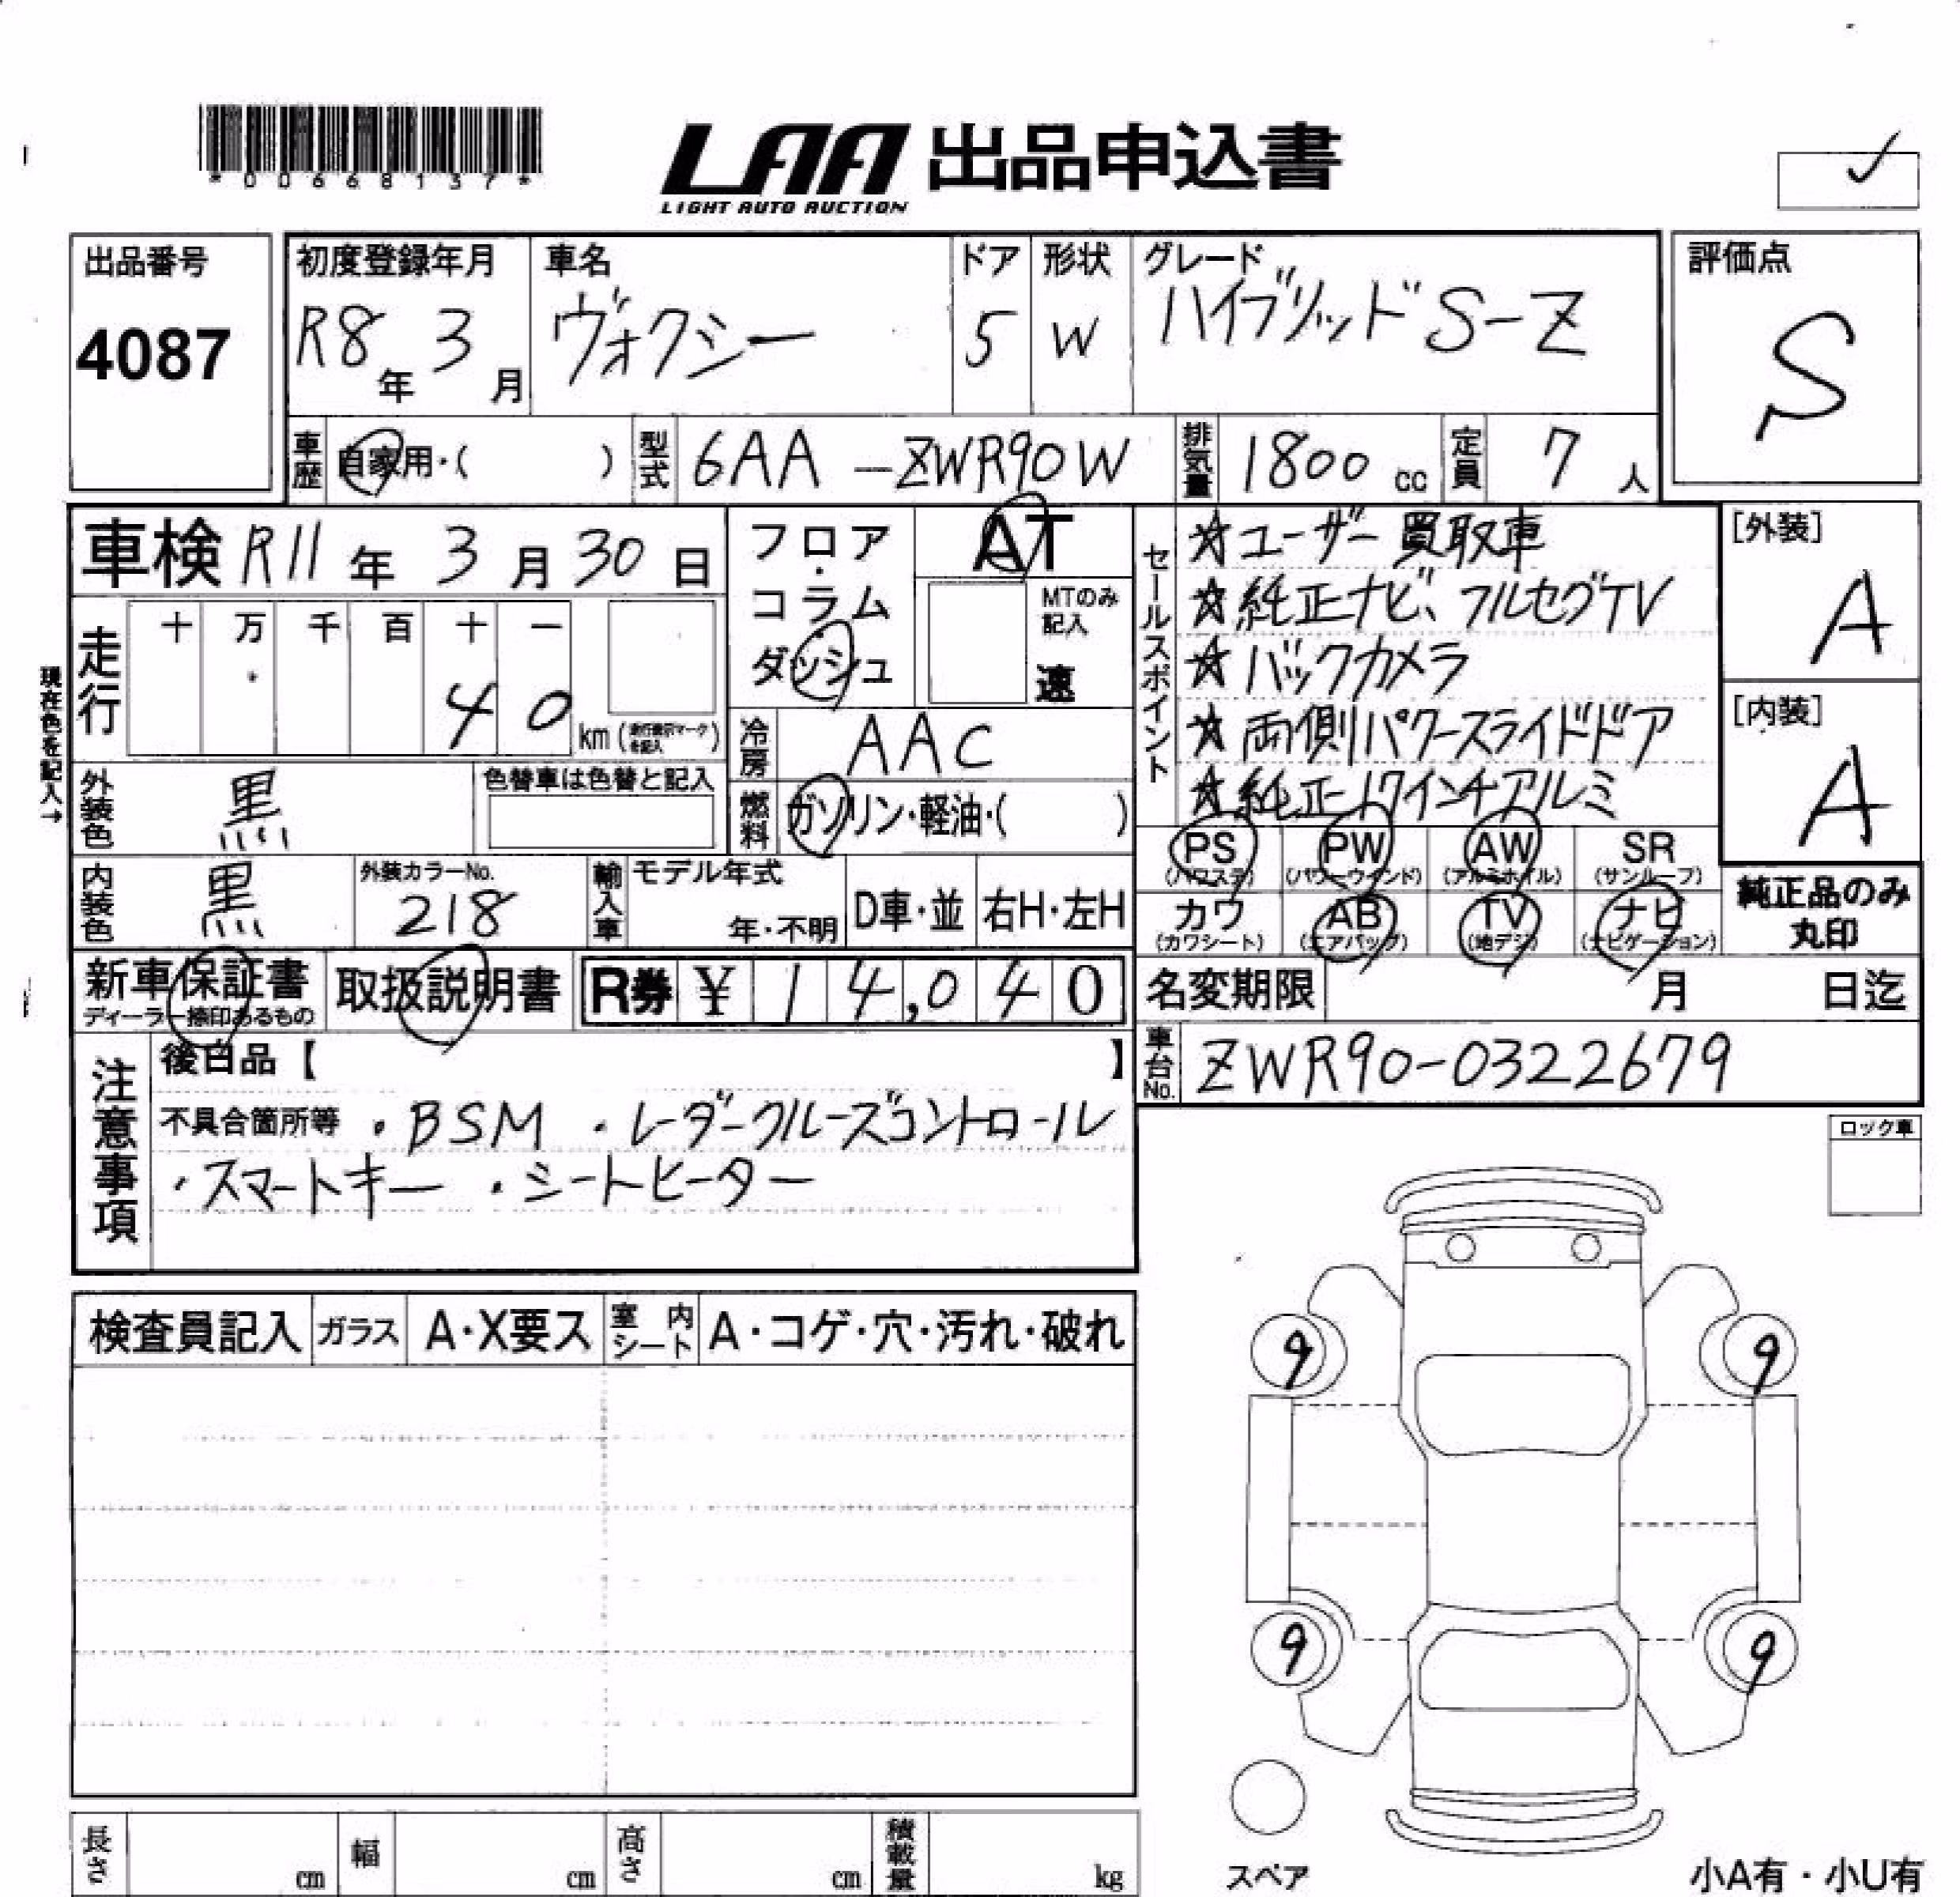 *00668137*
LAA 出品申込書
LIGHT AUTO AUCTION
出品番号
4087
初度登録年月
R8年 3月
車名
ヴォクシー
ドア
5
形状
W
グレード
ハイブリッド S-Z
評価点
S
車歴 自家用・( )
型式 6AA-ZWR90W
排気量 1800 cc
定員 7 人
車検 R11年 3月 30日
フロア・コラム・ダッシュ
AT
MTのみ記入
速
セールスポイント
☆ユーザー買取車
☆純正ナビ、フルセグTV
☆バックカメラ
☆両側パワースライドドア
☆純正17インチアルミ
[外装]
A
[内装]
A
現在色を記入→
走行
十 万 千 百 十 一
4 0 km
冷房 AAC
外装色 黒
色替車は色替と記入
燃料 ガソリン・軽油・( )
内装色 黒
外装カラーNo.
218
輸入車
モデル年式
年・不明
D車・並
右H・左H
PS
(パワステ)
PW
(パワーウインド)
AW
(アルミホイル)
SR
(サンルーフ)
カワ
(カワシート)
AB
(エアバッグ)
TV
(地デジ)
ナビ
(ナビゲーション)
純正品のみ
丸印
新車保証書
ディーラー捺印あるもの
取扱説明書
R券 ¥ 14,040
名変期限 月 日迄
車台No. ZWR90-0322679
注意事項
後日品【 】
不具合箇所等 ・BSM ・レーダークルーズコントロール
・スマートキー ・シートヒーター
ロック車
検査員記入
ガラス A・X要ス
室内シート A・コゲ・穴・汚れ・破れ
9 9
9 9
スペア
小A有・小U有
長さ cm
幅 cm
高さ cm
積載量 kg